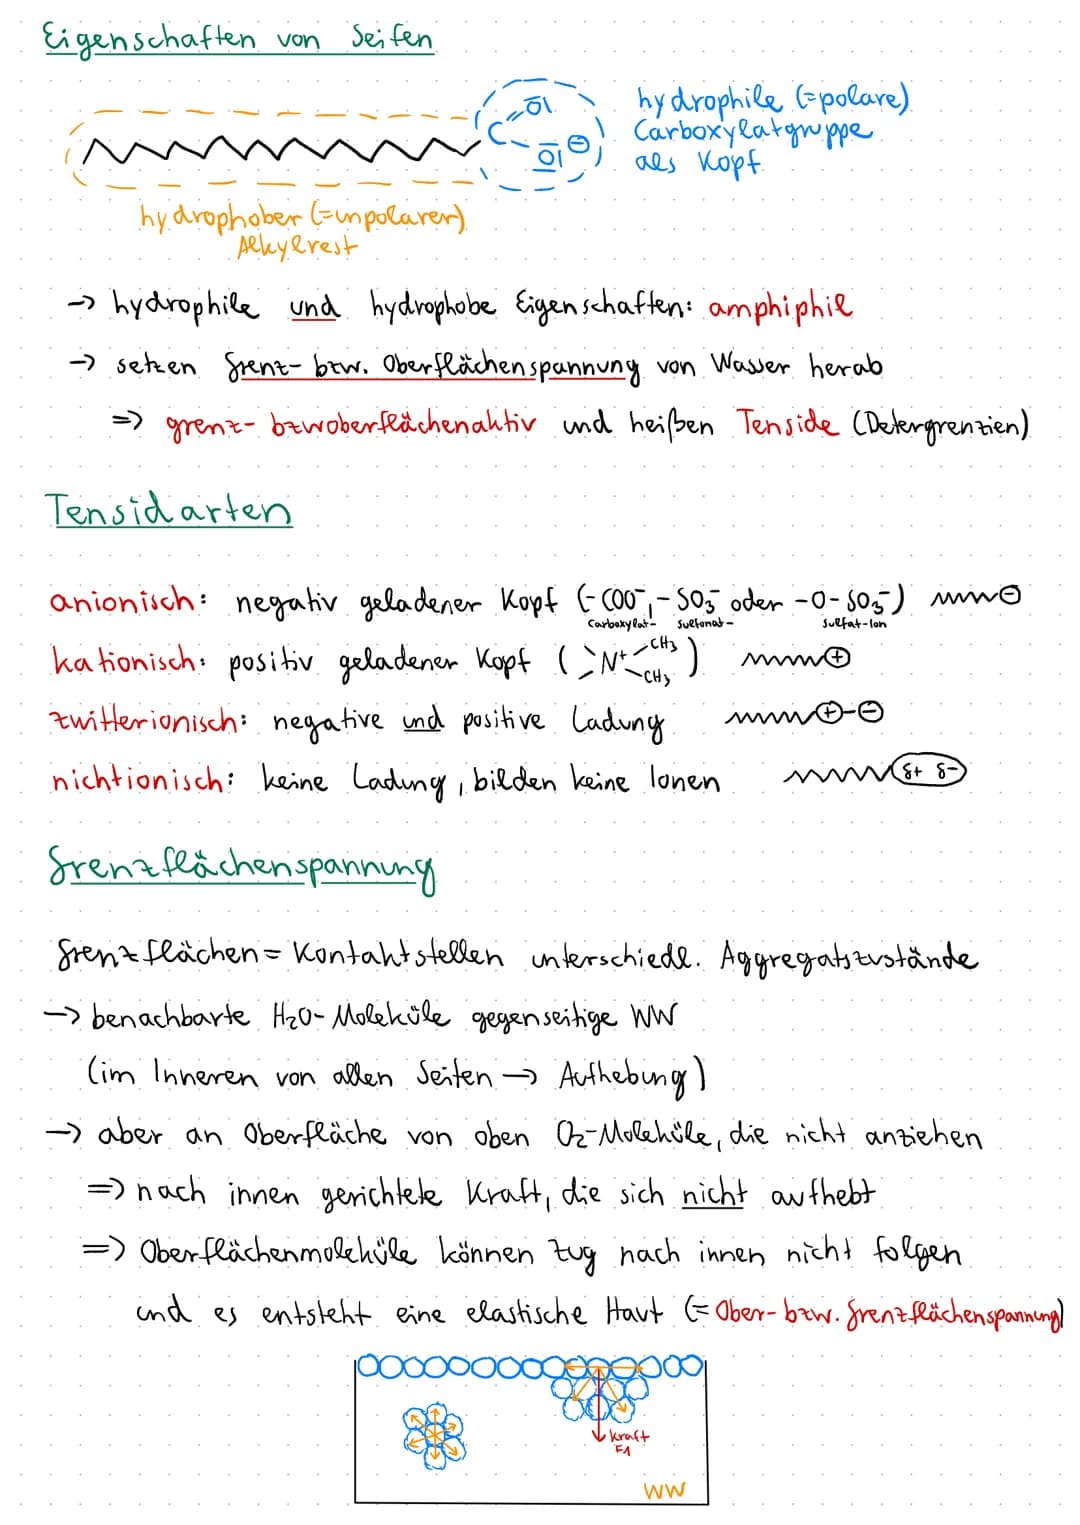 Eigenschaften von Seifen
hydrophile (=polare)
Carboxylatgruppe
als Kopf
C
O
O ⊖
hydrophober (=unpolarer)
Alkylrest
-> hydrophile und hydrophobe Eigenschaften: amphiphil
-> setzen Grenz- bzw. Oberflächenspannung von Wasser herab
=> grenz- bzw oberflächenaktiv und heißen Tenside (Detergrenzien)
Tensidarten
anionisch: negativ geladener Kopf (-COO⁻, -SO₃⁻ oder -O-SO₃⁻) ⊖
Carboxylat- Sulfonat- Sulfat-Ion
kationisch: positiv geladener Kopf (N⁺ -CH₃ -CH₃) ⊕
zwitterionisch: negative und positive Ladung ⊕-⊖
nichtionisch: keine Ladung, bilden keine Ionen δ+ δ-
Grenzflächenspannung
Grenzflächen = Kontaktstellen unterschiedl. Aggregatszustände
-> benachbarte H₂O-Moleküle gegenseitige WW
(im Inneren von allen Seiten -> Aufhebung)
-> aber an Oberfläche von oben O₂-Moleküle, die nicht anziehen
=> nach innen gerichtete Kraft, die sich nicht aufhebt
=> Oberflächenmoleküle können Zug nach innen nicht folgen
und es entsteht eine elastische Haut (= Ober- bzw. Grenzflächenspannung)
Kraft
F1
WW